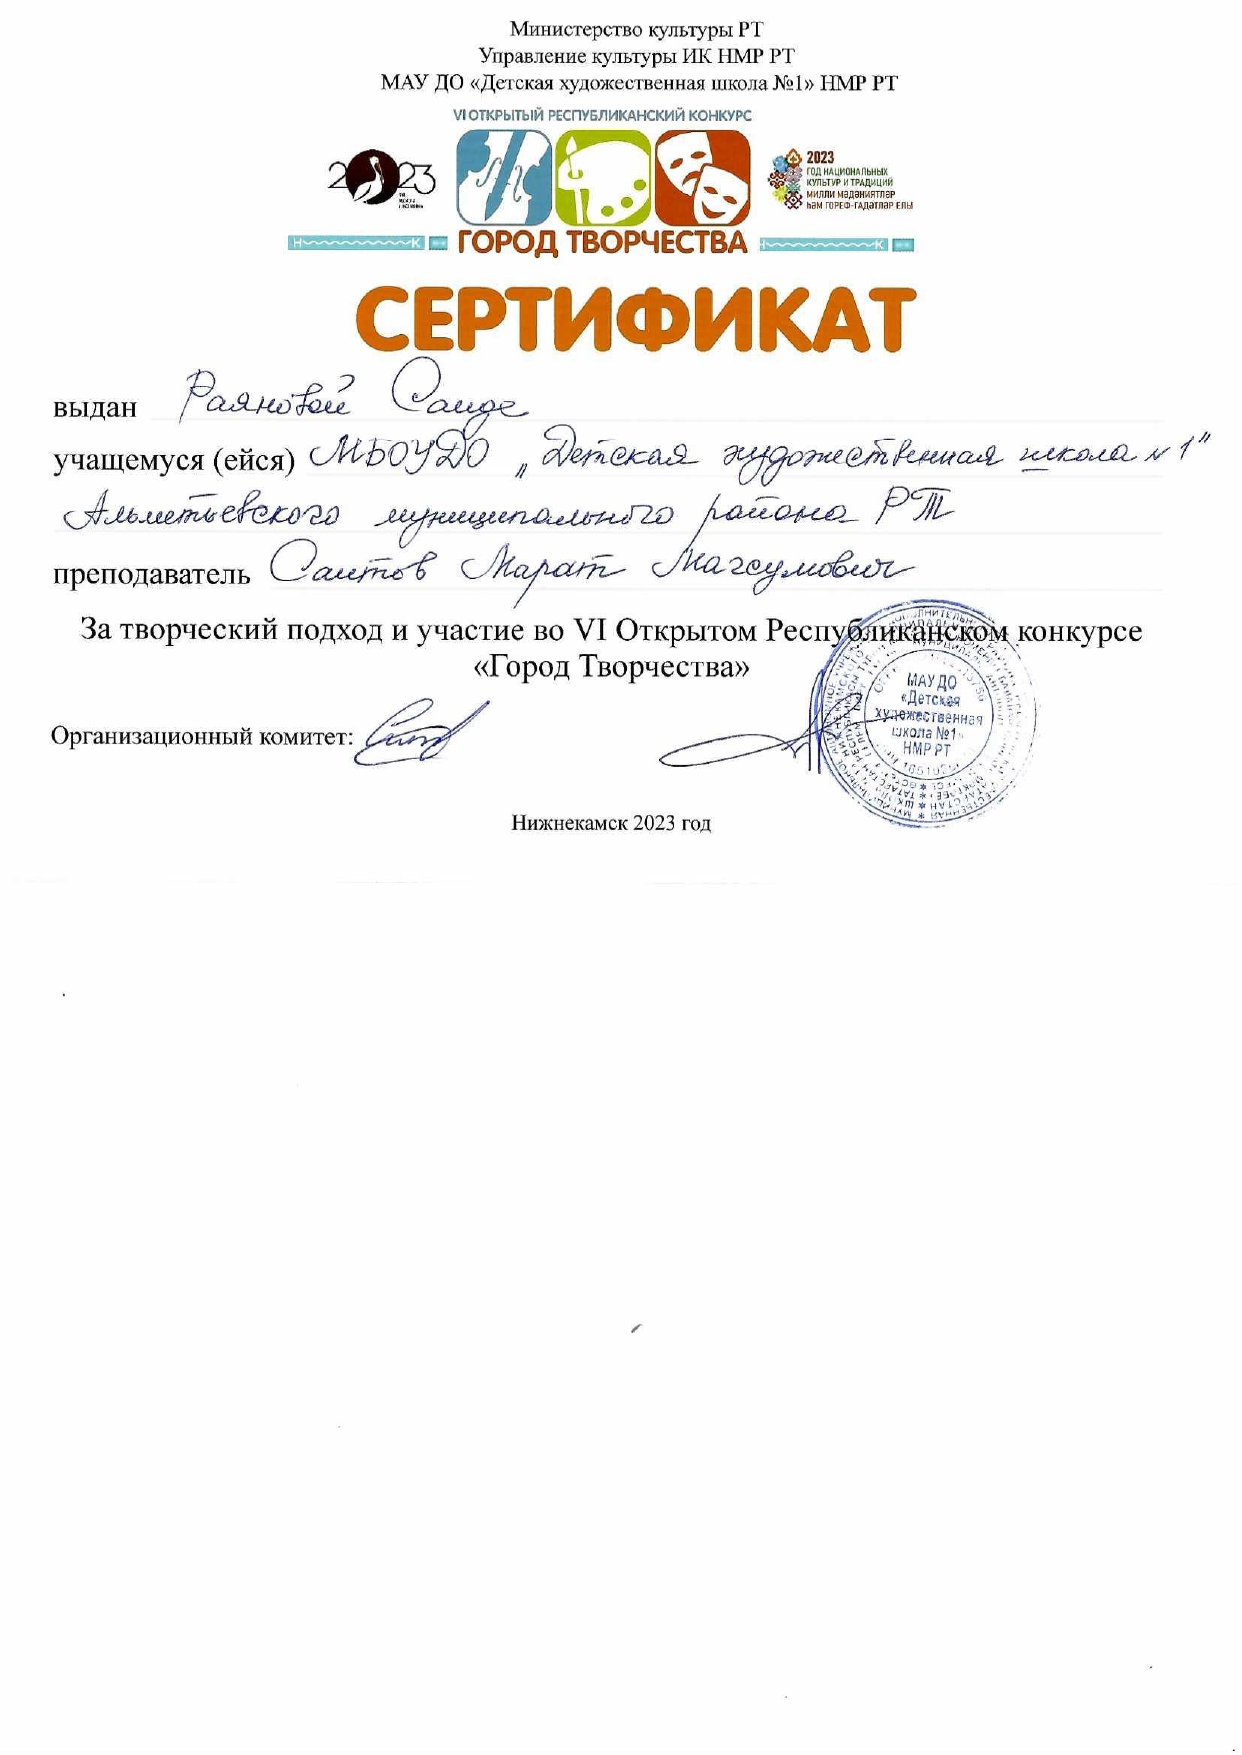 Министерство культуры РТ
Управление культуры ИК НМР РТ
МАУ ДО «Детская художественная школа №1» НМР РТ
VI ОТКРЫТЫЙ РЕСПУБЛИКАНСКИЙ КОНКУРС
2023
2023
ГОД НАЦИОНАЛЬНЫХ
КУЛЬТУР И ТРАДИЦИЙ
МИЛЛИ МӘДӘНИЯТЛӘР
ҺӘМ ГОРЕФ-ГАДӘТЛӘР ЕЛЫ
ГОРОД ТВОРЧЕСТВА
СЕРТИФИКАТ
выдан Раяновой Саиде
учащемуся (ейся) МБОУДО „Детская художественная школа №1"
Альметьевского муниципального района РТ
преподаватель Саитов Марат Магсумович
За творческий подход и участие во VI Открытом Республиканском конкурсе
«Город Творчества»
МАУ ДО
«Детская
художественная
школа №1»
НМР РТ
Организационный комитет:
Нижнекамск 2023 год